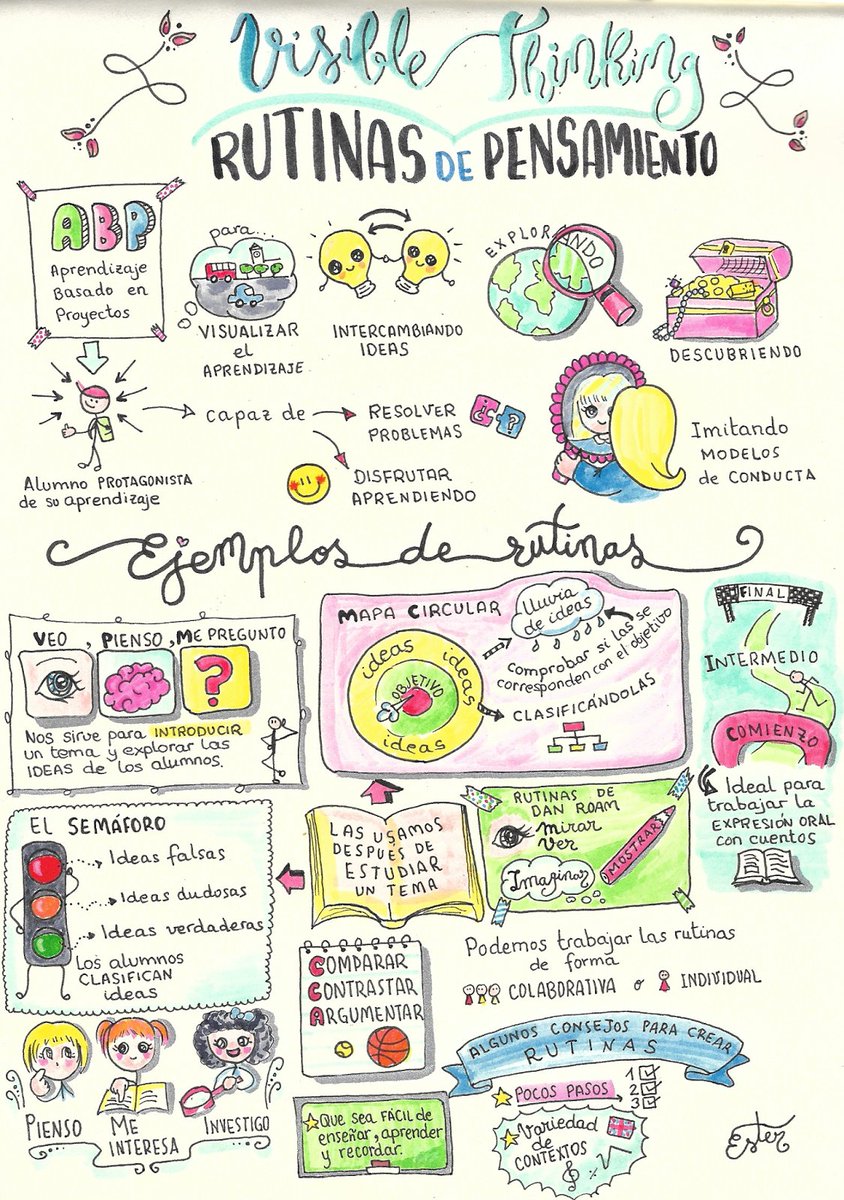 Visible Thinking
RUTINAS DE PENSAMIENTO
ABP
Aprendizaje
Basado en
Proyectos
para...
VISUALIZAR
el
APRENDIZAJE
INTERCAMBIANDO
IDEAS
EXPLORANDO
DESCUBRIENDO
Alumno PROTAGONISTA
de su aprendizaje
capaz de
RESOLVER
PROBLEMAS
DISFRUTAR
APRENDIENDO
Imitando
MODELOS
de CONDUCTA
Ejemplos de rutinas
VEO, PIENSO, ME PREGUNTO
?
Nos sirve para INTRODUCIR
un tema y explorar las
IDEAS de los alumnos.
MAPA CIRCULAR
ideas ideas
OBJETIVO
ideas
lluvia
de ideas
comprobar si las se
corresponden con el objetivo
CLASIFICÁNDOLAS
FINAL
INTERMEDIO
COMIENZO
Ideal para
trabajar la
EXPRESIÓN ORAL
con cuentos
EL SEMÁFORO
Ideas falsas
Ideas dudosas
Ideas verdaderas
Los alumnos
CLASIFICAN
ideas
LAS USAMOS
DESPUÉS DE
ESTUDIAR
UN TEMA
RUTINAS DE
DAN ROAM
Mirar
Ver
Imaginar
MOSTRAR
COMPARAR
CONTRASTAR
ARGUMENTAR
Podemos trabajar las rutinas
de forma
COLABORATIVA o INDIVIDUAL
PIENSO
ME
INTERESA
INVESTIGO
ALGUNOS CONSEJOS PARA CREAR
RUTINAS
POCOS PASOS
1
2
3
Que sea FÁCIL de
enseñar, aprender
y recordar.
Variedad
de
CONTEXTOS
Ester